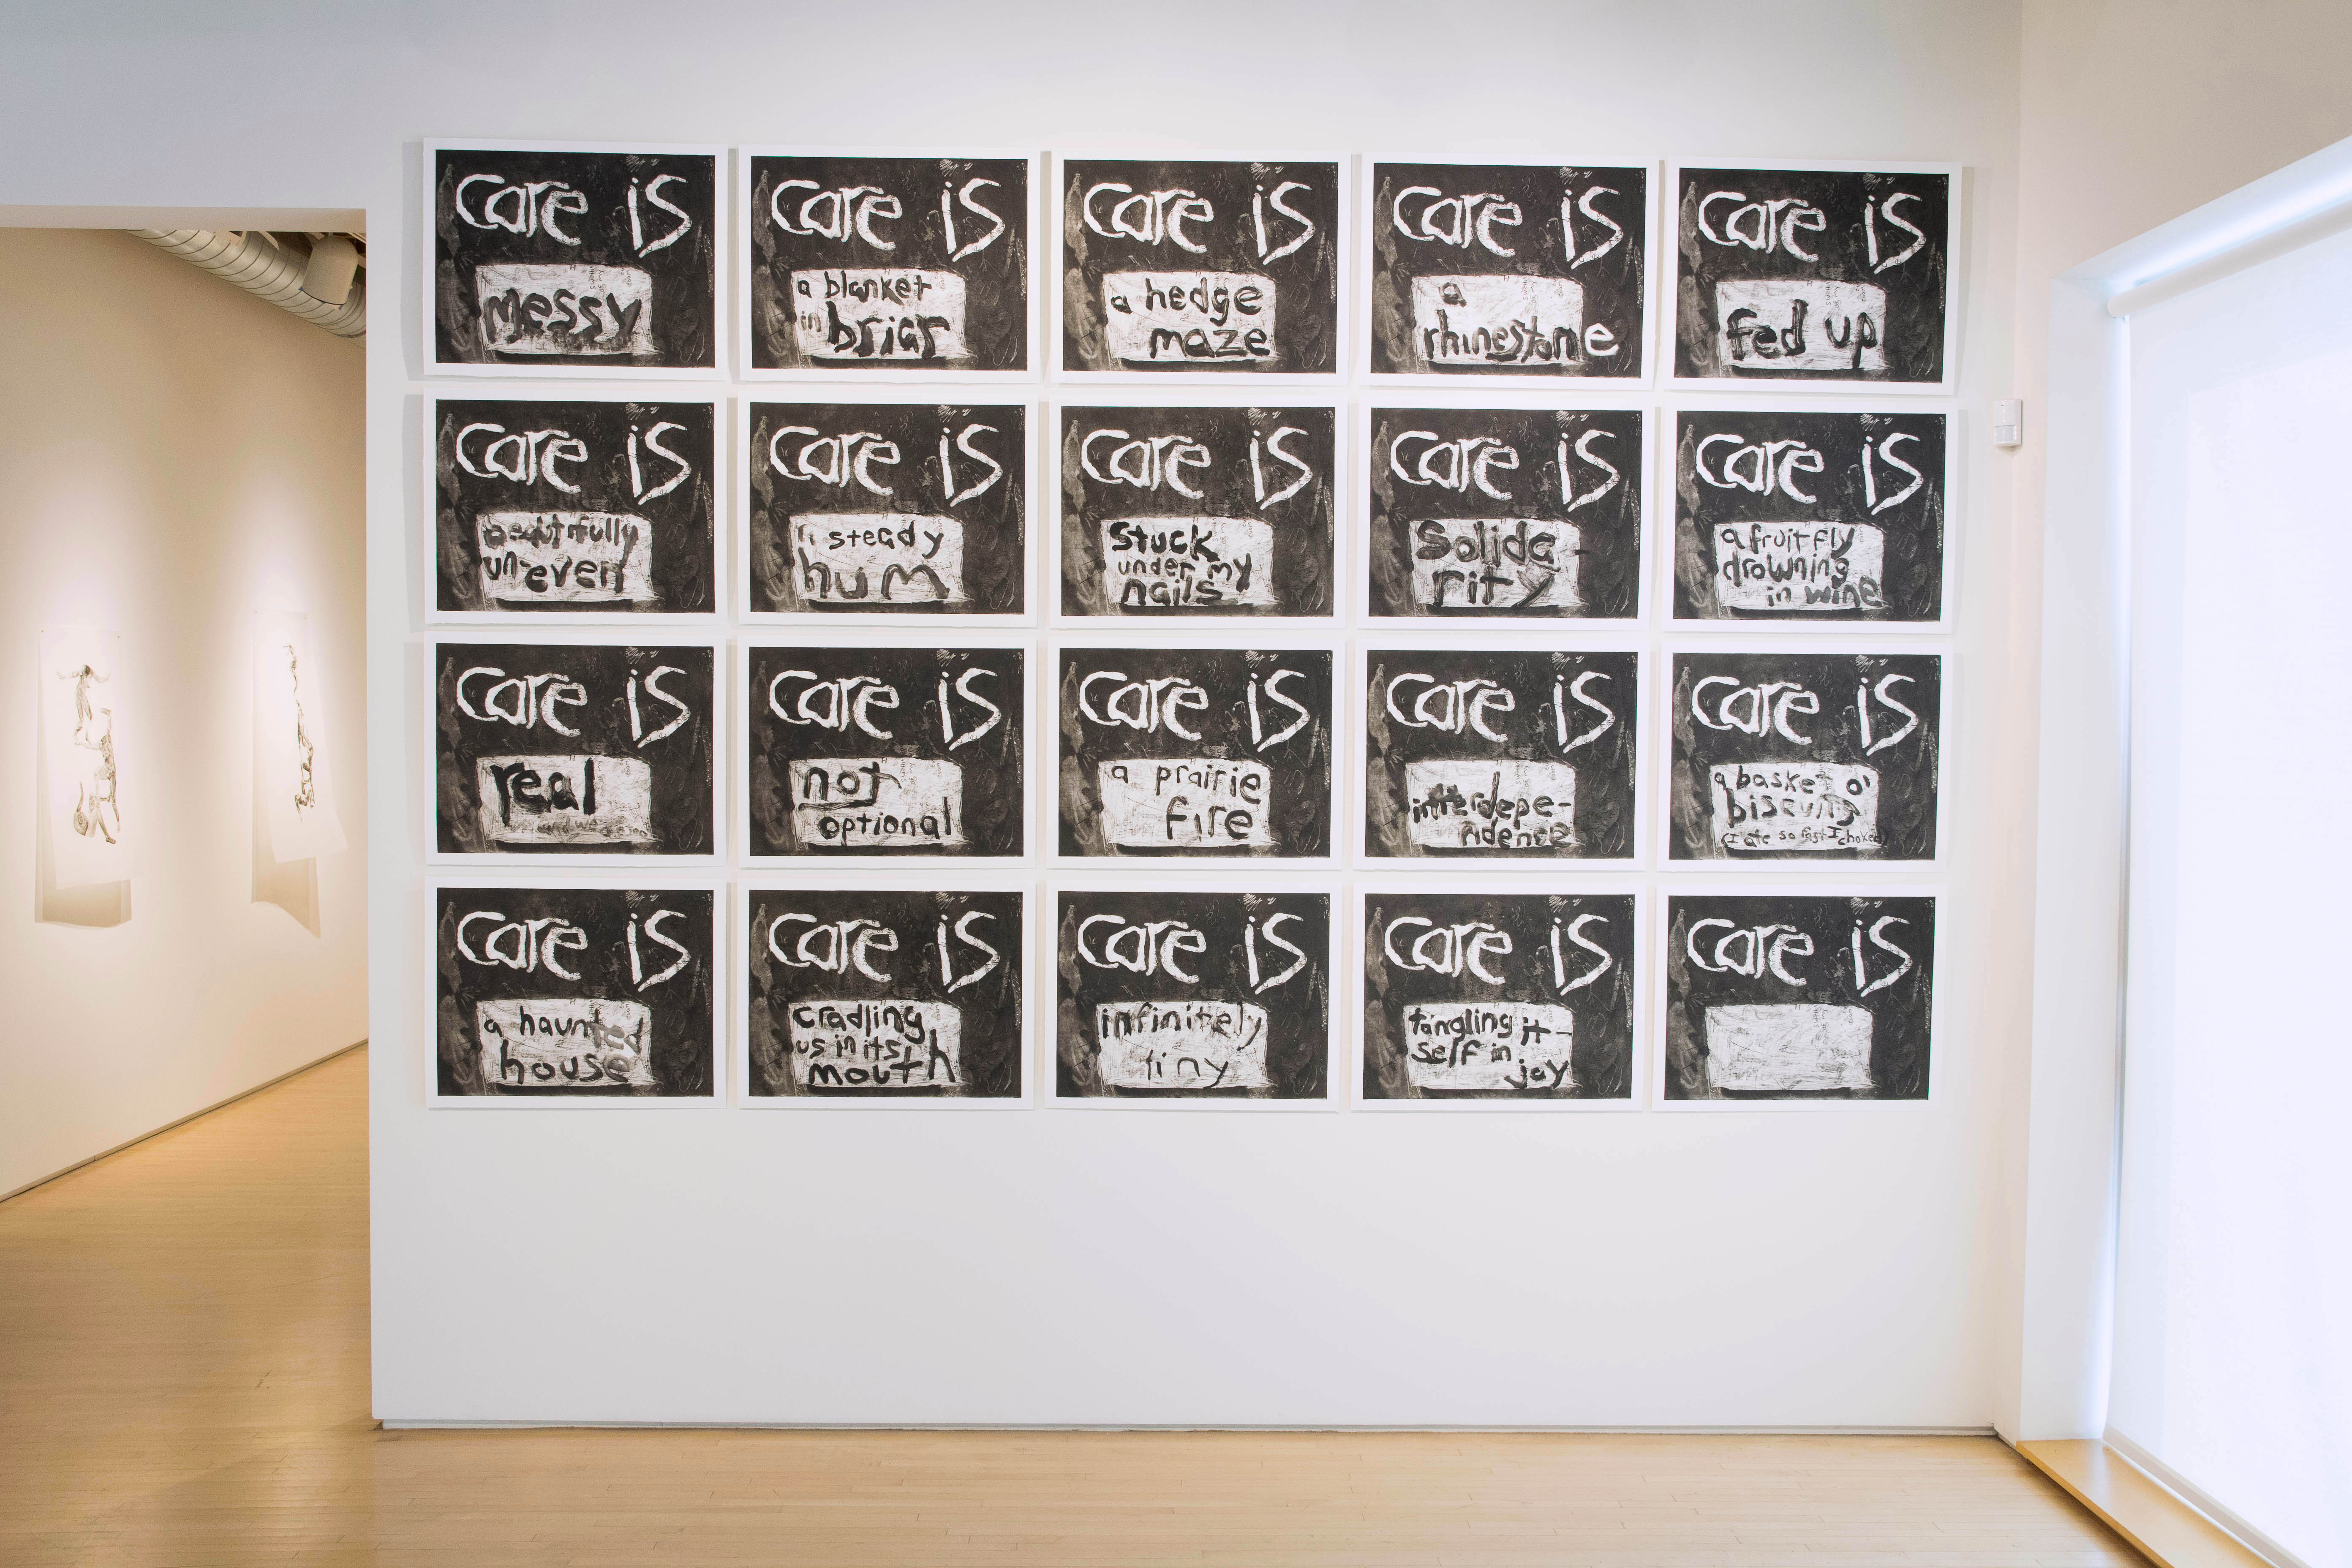 care is
messy
care is
a blanket
in briar
care is
a hedge
maze
care is
a
rhinestone
care is
fed up
care is
beautifully
un-even
care is
a steady
hum
care is
stuck
under my
nails
care is
solida-
rity
care is
a fruit fly
drowning
in wine
care is
real
care is
not
optional
care is
a prairie
fire
care is
interdepe-
ndence
care is
a basket o'
biscuits
(I ate so fast I choked)
care is
a haunted
house
care is
cradling
us in its
mouth
care is
infinitely
tiny
care is
tangling it-
self in
joy
care is